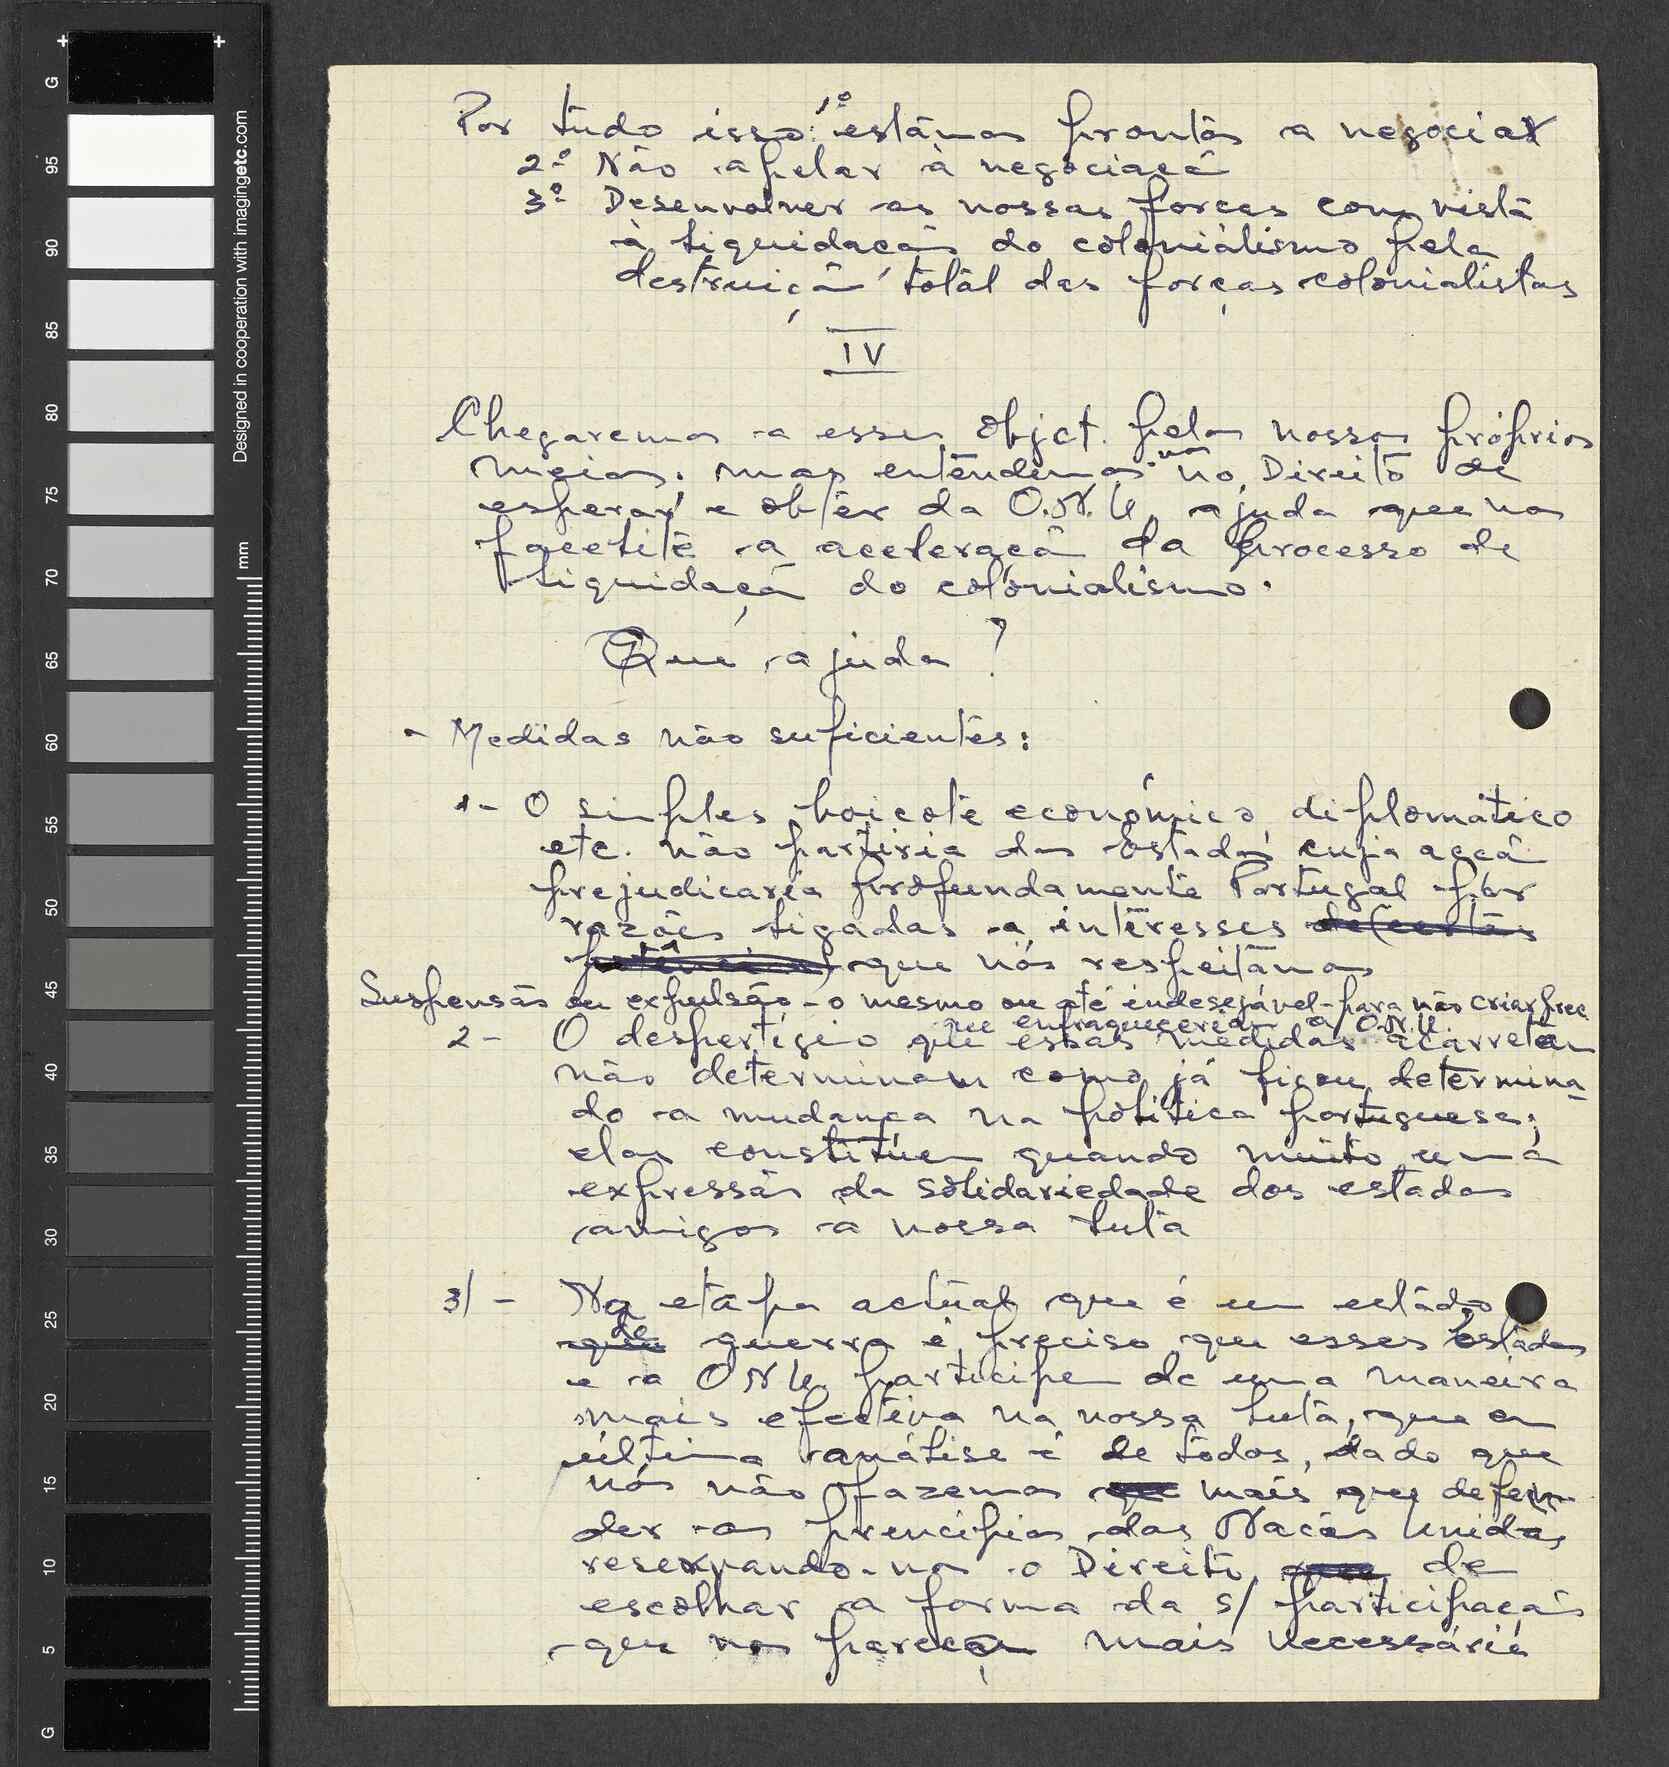 Por tudo isso: 1º estamos prontos a negociar
2º Não apelar à negociação
3º Desenvolver as nossas forças com vista
à liquidação do colonialismo pela
destruição total das forças colonialistas
IV
Chegaremos a esses object. pelos nossos próprios
meios. mas entendemos-nos no Direito de
esperar e obter da O.N.U. ajuda que nos
facilite a aceleração do processo de
liquidação do colonialismo.
Que ajuda?
- Medidas não suficientes:
1- O simples boicote económico, diplomático
etc. não partiria dos Estados cuja acção
prejudicaria profundamente Portugal por
razões ligadas a interesses
que nós respeitamos
Suspensão ou expulsão - o mesmo ou até indesejável - para não criar prec.
que enfraqueceria a O.N.U.
2- O despertígio que essas medidas acarretam
não determinam como já ficou determina-
do a mudança na política portuguesa;
elas constituem quando muito uma
expressão da solidariedade dos estados
amigos a nossa luta
3/- Na etapa actual que é um estado
de guerra é preciso que esses Estados
e a ONU participem de uma maneira
mais efectiva na nossa luta, que em
última análise é de todos, dado que
nós não fazemos mais que defen-
der os princípios das Nações Unidas,
reservando-nos o Direito de
escolher a forma da s/ participação
que nos pareça mais necessária
G
95
90
85
80
75
70
65
60
55
50
45
40
35
30
25
20
15
10
5
G
mm
Designed in cooperation with imagingetc.com